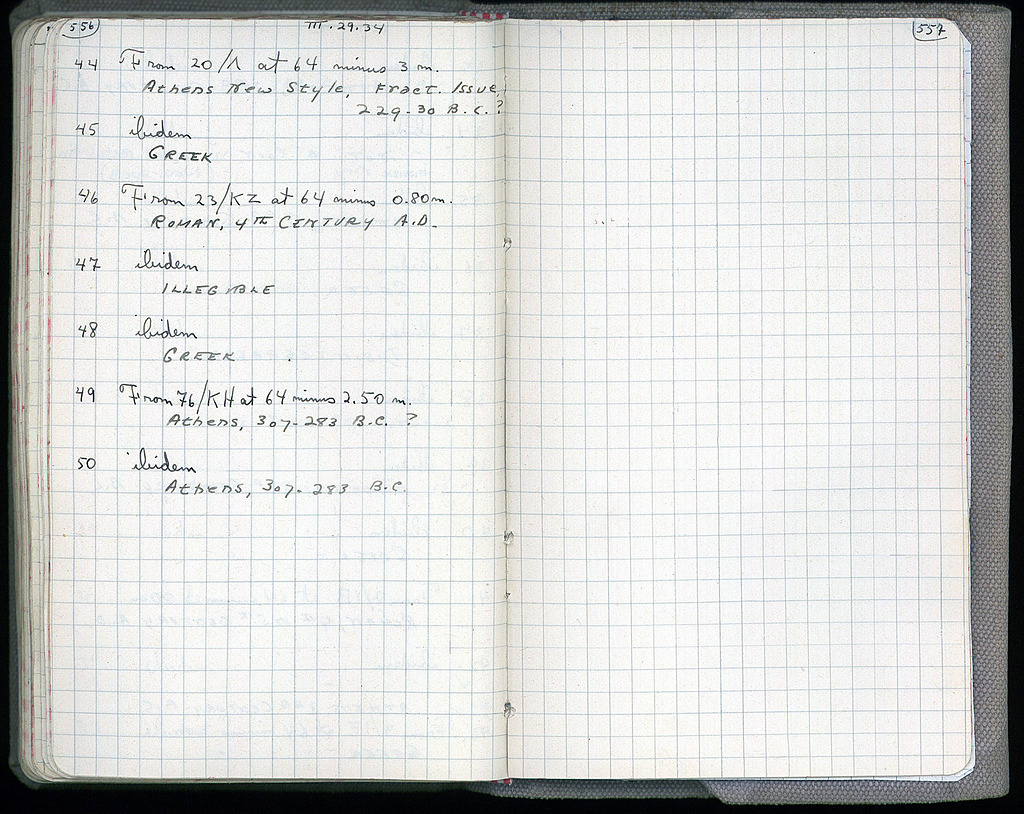 556
III.29.34
44 From 20/Λ at 64 minus 3 m.
Athens New Style, Fract. Issue,
229-30 B.C.?
45 ibidem
GREEK
46 From 23/KZ at 64 minus 0.80 m.
ROMAN, 4TH CENTURY A.D.
47 ibidem
ILLEGIBLE
48 ibidem
GREEK
49 From 76/KH at 64 minus 2.50 m.
Athens, 307-283 B.C. ?
50 ibidem
Athens, 307-283 B.C.
557